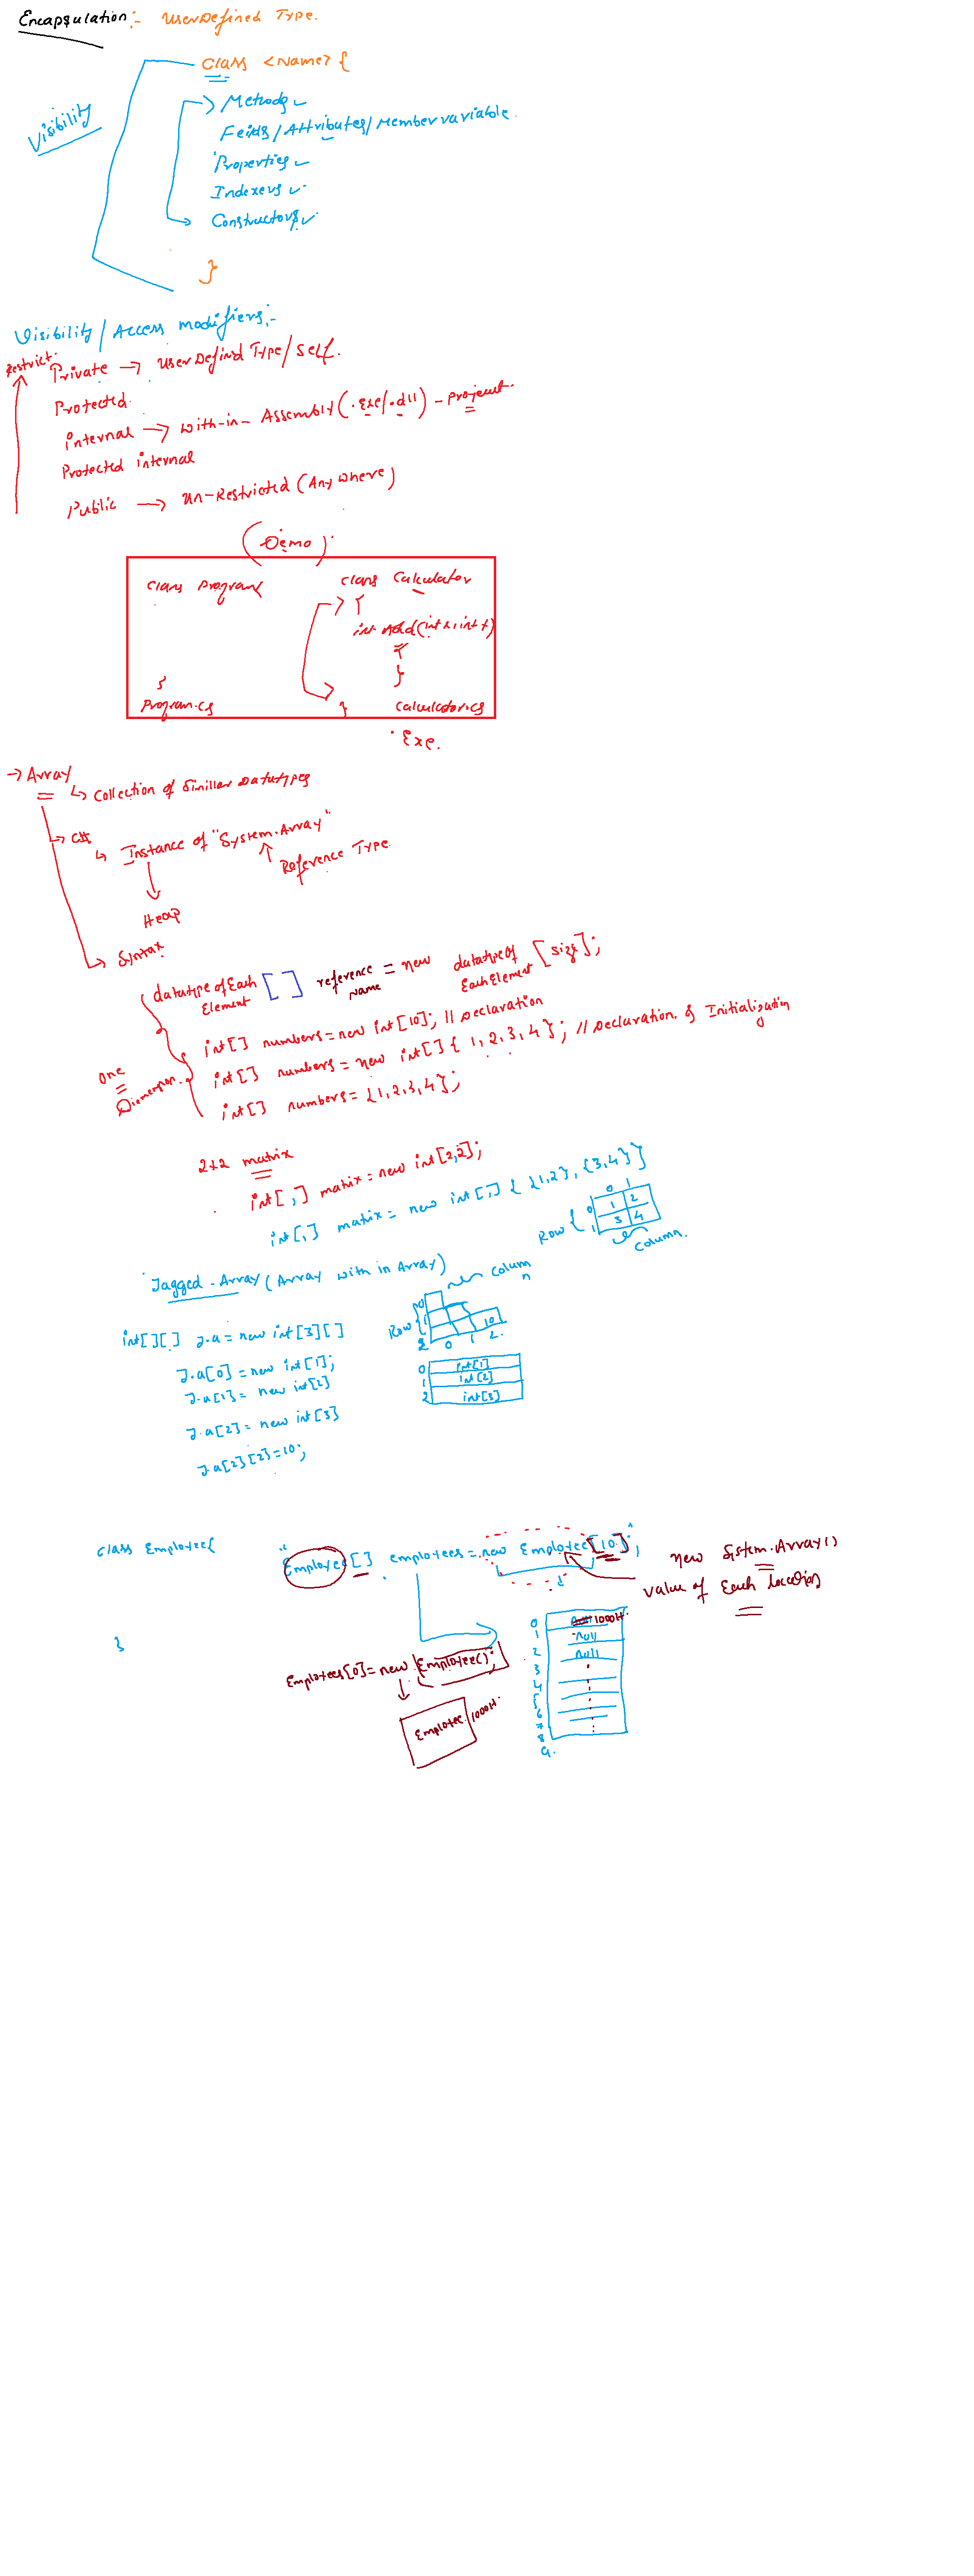 Encapsulation:- UserDefined Type.
class <Name> {
Visibility
Methods
Feilds/Attributes/Membervariable.
Properties
Indexers
Constructors
}
Visibility/Access modifiers:-
Restrict.
Private → UserDefind Type/self.
Protected.
internal → with-in- Assembly(.exe/.dll) - project.
Protected internal
Public → Un-Restricted (Any where)
(Demo)
class Program{
class Calculator
{
int Add(int x, int y)
{
}
}
}
Program.cs
Calculator.cs
.Exe.
→ Array
↳ Collection of Similler Datatypes
↳ C#
↳ Instance of "System.Array"
Reference Type
Heap
→ Syntax
datatype of Each Element [ ] reference Name = new datatype of Each Element [size];
One Dimension.
int[] numbers=new int[10]; // Declaration
int[] numbers= new int[]{ 1, 2, 3, 4 }; // Declaration & Initialization
int[] numbers= {1,2,3,4};
2x2 matrix
int[,] matrix=new int[2,2];
int[,] matrix= new int[,] { {1,2}, {3,4} }
0 1
Row { 0 1 2
1 3 4
Column.
Jagged-Array (Array with in Array)
Column
Row
0
1
2
10
0 1 2.
int[][] J.a = new int[3][]
J.a[0]=new int[1];
J.a[1]= new int[2]
J.a[2]= new int[3]
J.a[2][2]=10;
0 int[1]
1 int[2]
2 int[3]
class Employee{
}
Employee[] employees=new Employee[10];
new System.Array()
value of Each location
Employees[0]=new Employee();
Employee 1000H.
0 Null 1000H.
1 Null
2 Null
3
4
5
6
7
8
9.